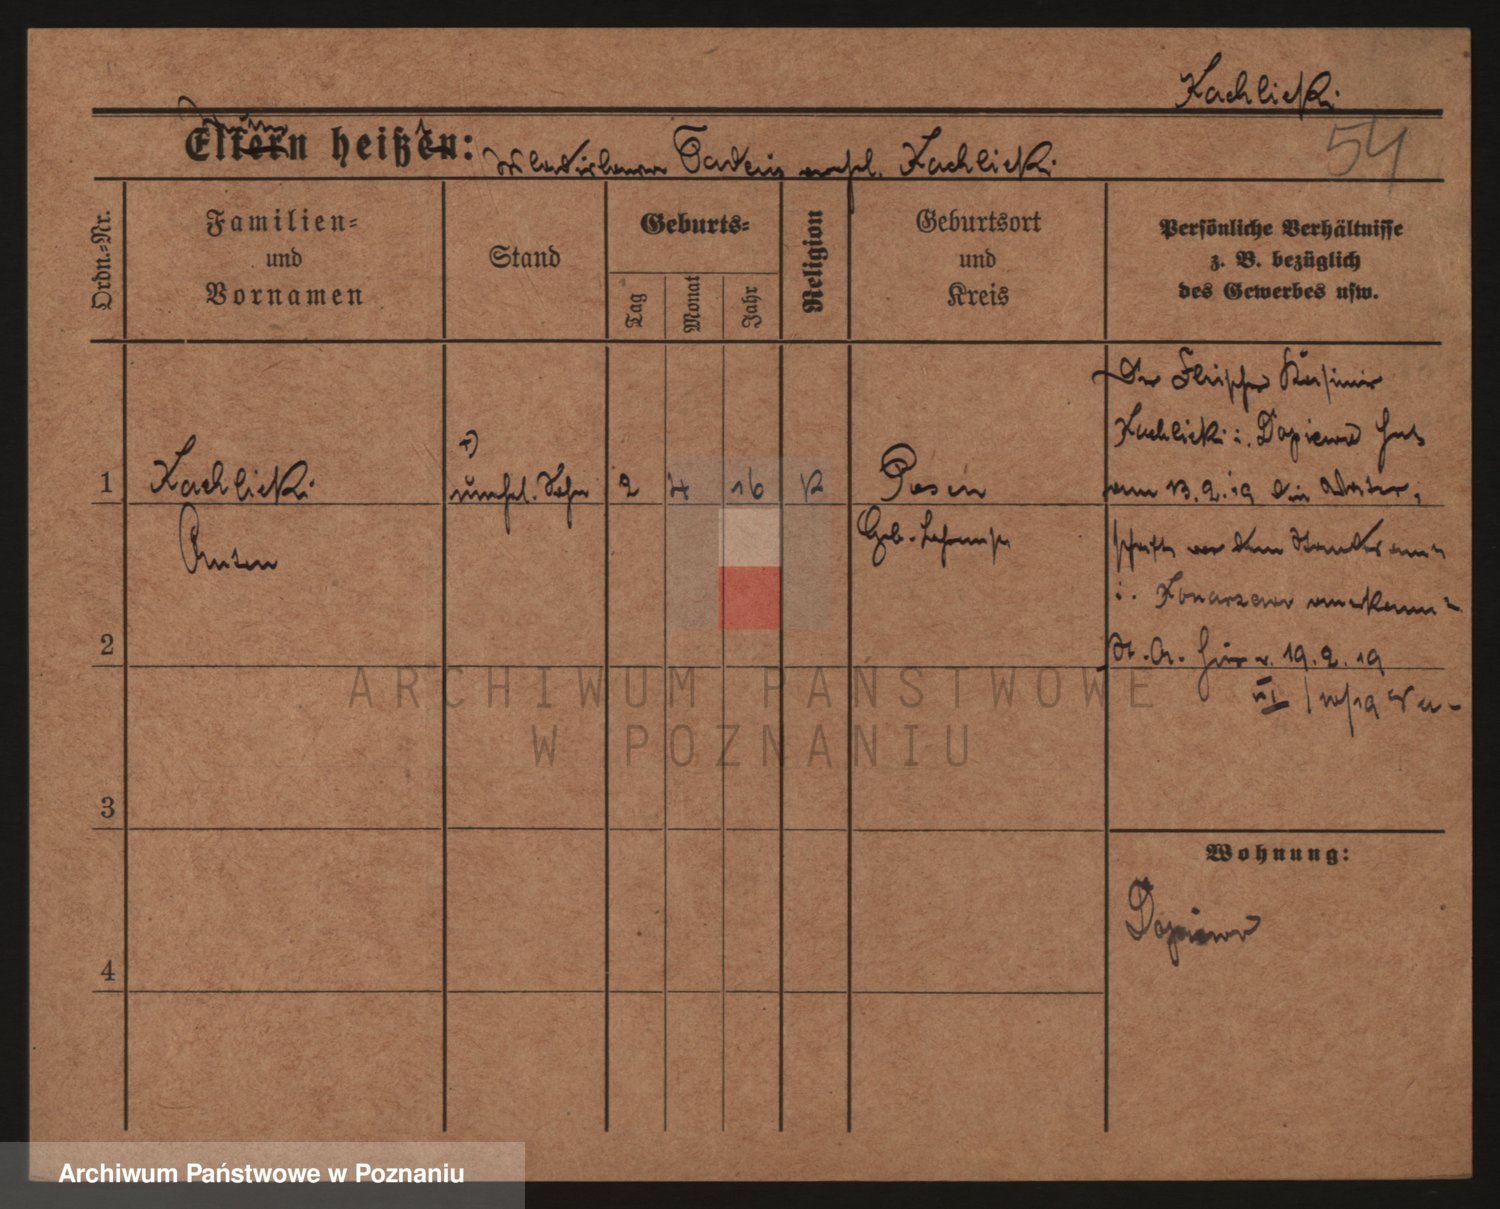 Kachlicki
54
Eltern heißen: Kachlicki
Ordn.-Nr.
Familien-
und
Vornamen
Stand
Geburts-
Tag
Monat
Jahr
Religion
Geburtsort
und
Kreis
Persönliche Verhältnisse
z. B. bezüglich
des Gewerbes usw.
Der Fleischer Kasimir
Kachlicki i. Dopiewo hat
1 Kachlicki unehel. Sohn 2 4 16 K Posen am 13.2.19 die Vater-
Geb.
schaft vor dem Standesamt
i. Konarzewo anerkannt
2
St. A. hier v. 19.2.19
VI
3
Wohnung:
Dopiewo
4
ARCHIWUM PAŃSTWOWE
W POZNANIU
Archiwum Państwowe w Poznaniu